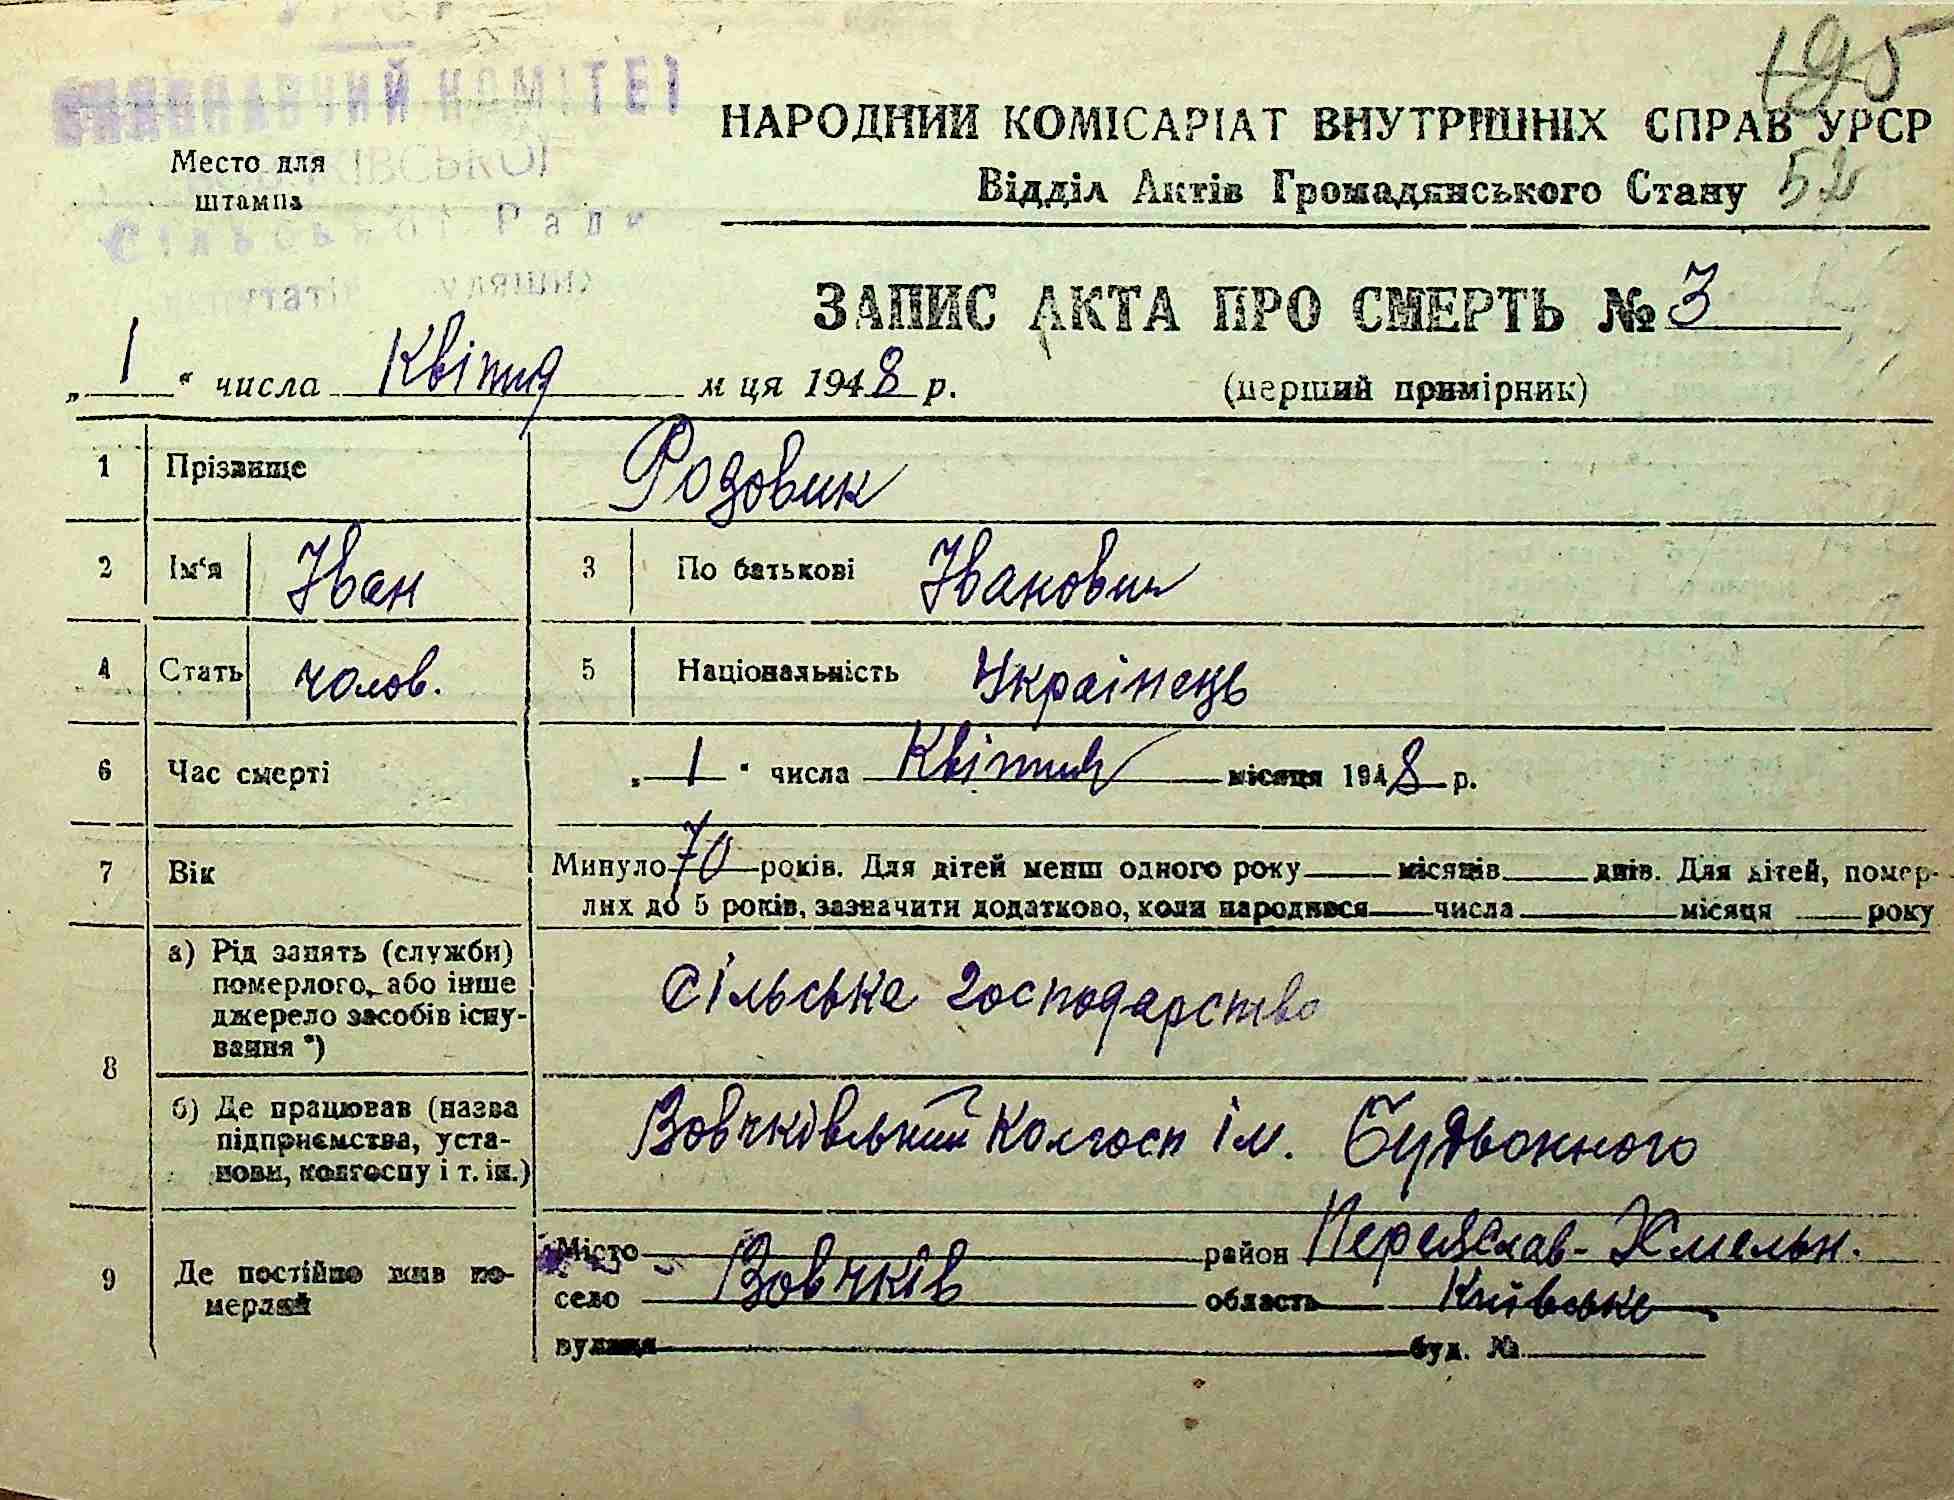 УРСР
ВИКОНАВЧИЙ КОМІТЕТ
Место для
штампа
Сільської Ради
195
НАРОДНИЙ КОМІСАРІАТ ВНУТРІШНІХ СПРАВ УРСР
Відділ Актів Громадянського Стану 52
ЗАПИС АКТА ПРО СМЕРТЬ № 3
„1“ числа Квітня м ця 1948 р.
(перший примірник)
1 Прізвище Родовик
2 Ім‘я Іван 3 По батькові Іванович
4 Стать чолов. 5 Національність Українець
6 Час смерті „1“ числа Квітня місяця 1948 р.
7 Вік Минуло 70 років. Для дітей менш одного року місяців днів. Для дітей, помер-
лих до 5 років, зазначити додатково, коли народився числа місяця року
8 а) Рід занять (служби)
померлого, або інше
джерело засобів існу-
вання *)
Сільське господарство
б) Де працював (назва
підприємства, уста-
нови, колгоспу і т. ін.)
Вовчківський Колгосп ім. Будьонного
9 Де постійно жив по-
мерлий
Місто район Переяслав-Хмельн.
село Вовчків область Київська
вулиця буд. №